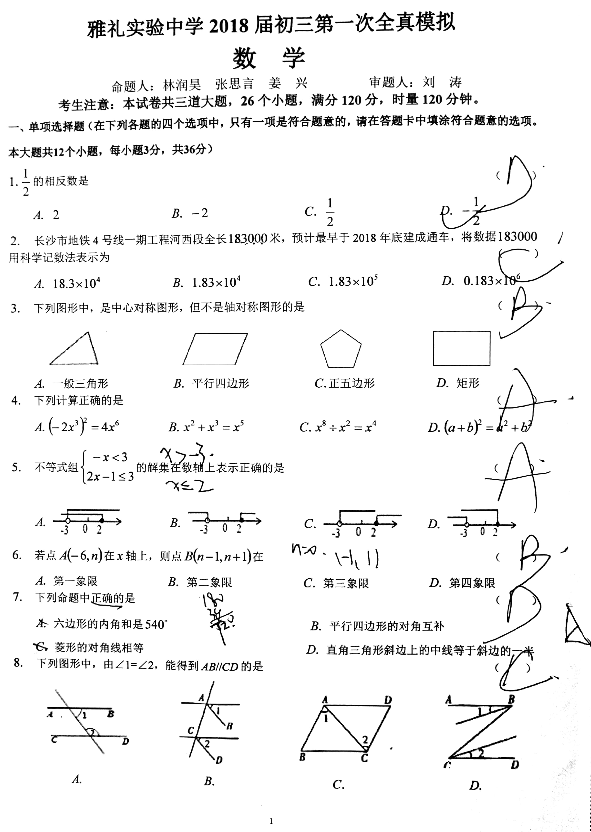 雅礼实验中学 2018 届初三第一次全真模拟
数 学
命题人：林润昊 张思言 姜 兴 审题人：刘 涛
考生注意：本试卷共三道大题，26 个小题，满分 120 分，时量 120 分钟。
一、单项选择题（在下列各题的四个选项中，只有一项是符合题意的，请在答题卡中填涂符合题意的选项。
本大题共12个小题，每小题3分，共36分）
1. 1/2 的相反数是 ( D )
A. 2 B. −2 C. 1/2 D. −1/2
2. 长沙市地铁 4 号线一期工程河西段全长183000米，预计最早于 2018 年底建成通车，将数据183000
用科学记数法表示为 ( C )
A. 18.3×10⁴ B. 1.83×10⁴ C. 1.83×10⁵ D. 0.183×10⁶
3. 下列图形中，是中心对称图形，但不是轴对称图形的是 ( B )
A. 一般三角形 B. 平行四边形 C. 正五边形 D. 矩形
4. 下列计算正确的是 ( A )
A. (−2x³)² = 4x⁶ B. x² + x³ = x⁵ C. x⁸ ÷ x² = x⁴ D. (a+b)² = a² + b²
x>-3
5. 不等式组{−x<3 2x−1≤3 的解集在数轴上表示正确的是 ( A )
x≤2
A. -3 0 2 B. -3 0 2 C. -3 0 2 D. -3 0 2
6. 若点 A(−6,n)在 x 轴上，则点 B(n−1,n+1)在 n=0. (-1, 1) ( B )
A. 第一象限 B. 第二象限 C. 第三象限 D. 第四象限
7. 下列命题中正确的是 180 ( D )
A. 六边形的内角和是540° 720 B. 平行四边形的对角互补
C. 菱形的对角线相等 D. 直角三角形斜边上的中线等于斜边的一半
8. 下列图形中，由∠1=∠2，能得到 AB//CD 的是 ( C )
A 1 B C 2 D
A 1 B C 2 D
A D 1 2 B C
A B 1 2 C D
A. B. C. D.
1